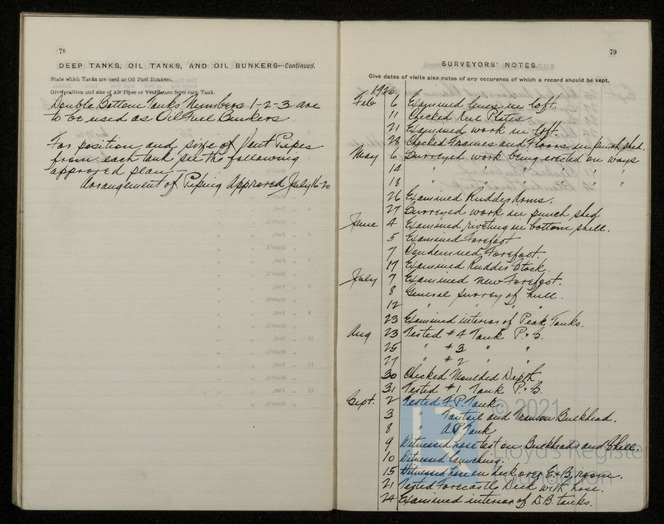 78
DEEP TANKS, OIL TANKS, AND OIL BUNKERS—Continued.
State which Tanks are used as Oil Fuel Bunkers.
Give position and size of Air Pipes or Ventilators from each Tank.
Double Bottom Tanks Numbers 1-2-3 are
to be used as Oil Fuel Bunkers
For position and size of Vent Pipes
from each tank see the following
approved plan,
Arrangement of Piping Approved July 16-20
79
SURVEYORS' NOTES.
Give dates of visits also notes of any occurence of which a record should be kept.
1920
Feb 6 Examined lines in loft.
11 Checked Keel Plates
21 Examined work in loft.
28 Checked Frames and Floors in punch shed.
May 6 Surveyed work being erected on ways
14 " " " " "
18 " " " " "
26 Examined Rudder Arms.
27 Surveyed work in punch shed
June 4 Examined riveting in bottom shell.
5 Examined Forefoot
7 Condemned Forefoot.
17 Examined Rudder Stock
July 7 Examined new Forefoot.
8 General Survey of hull.
12 " " "
23 Examined interior of Peak Tanks.
Aug 23 Tested #4 Tank P+S.
25 " #3 " "
27 " #2 " "
30 Checked Moulded Depth
31 Tested #1 Tank P+S
Sept. 2 Tested F.P. Tank
3 " and Bulkhead.
8 " A.P. Tank
9 Witnessed hose test on Bulkheads and Shell.
10 Witnessed launching.
15 Witnessed hose on deck over E+B room.
21 Tested Forecastle Deck with hose.
24 Examined interior of D.B. tanks.
© 2021
Lloyd's Register
Foundation